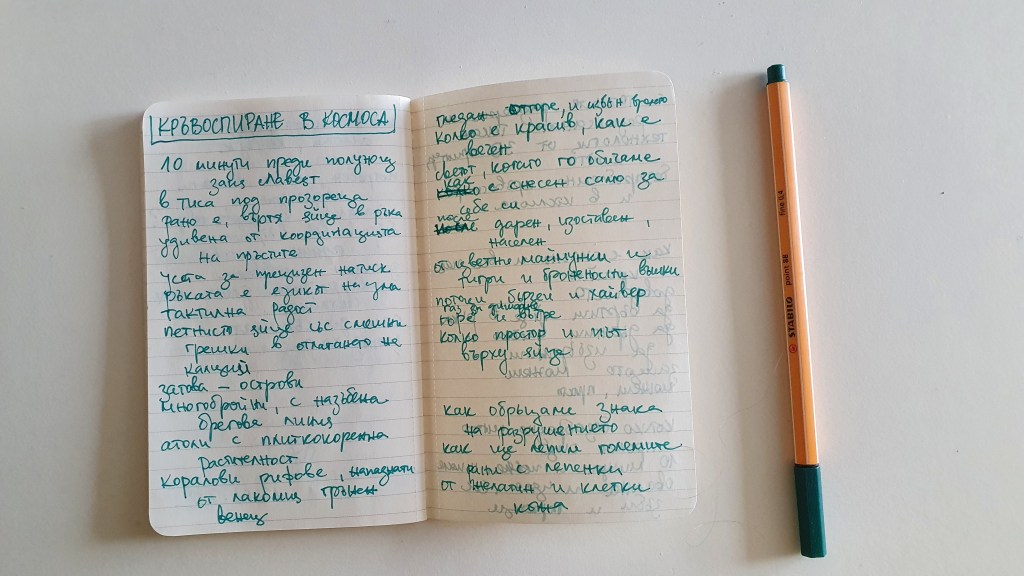 КРЪВОСПИРАНЕ В КОСМОСА
10 минути преди полунощ
заиц славеят
в тиса под прозореца
рано е, въртя яйце в ръка
удивена от координацията
на пръстите
уста за прецизен натиск
ръката е езикът на
тактилна радост
петнисто яйце със смешни
грешки в отлагането на
калций
затова – острови
многобройни, с назъбена
брегова линия
атоли с плиткокоренна
растителност
коралови рифове, нападнати
от лакомия трънен
венец
гледан отгоре, и извън времето
колко е красив, как е
вечен
светът, когато го обичаме
как е снесен само за
себе си
после дарен, изоставен,
населен
от цветни маймунки и
тигри и броненосни въшки
потоци бързеи и хайвер
газ за дишане
горе и вътре
колко простор и път
върху яйце
как обръщаме знака
на разрушението
как ще лепим големите
рани с лепенки
от желатин и клетки
кожа
STABILO point 88 fine 0,4